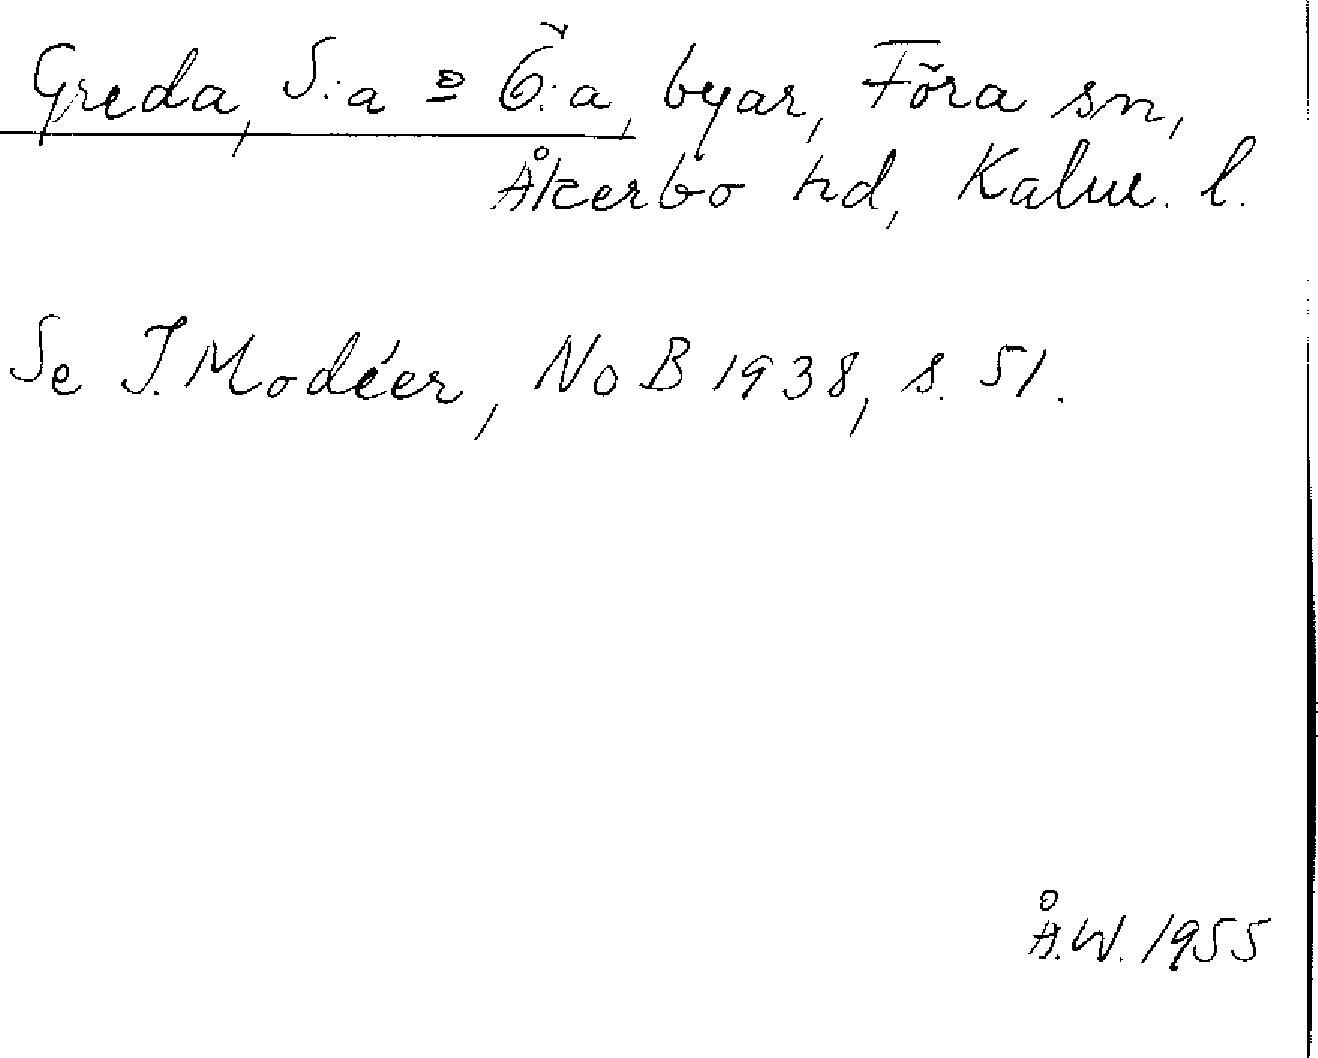 Greda, S:a o Ö:a, byar, Föra sn,
Åkerbo hd, Kalm. l.
Se I. Modéer, NoB 1938, s. 51.
Å.W. 1955